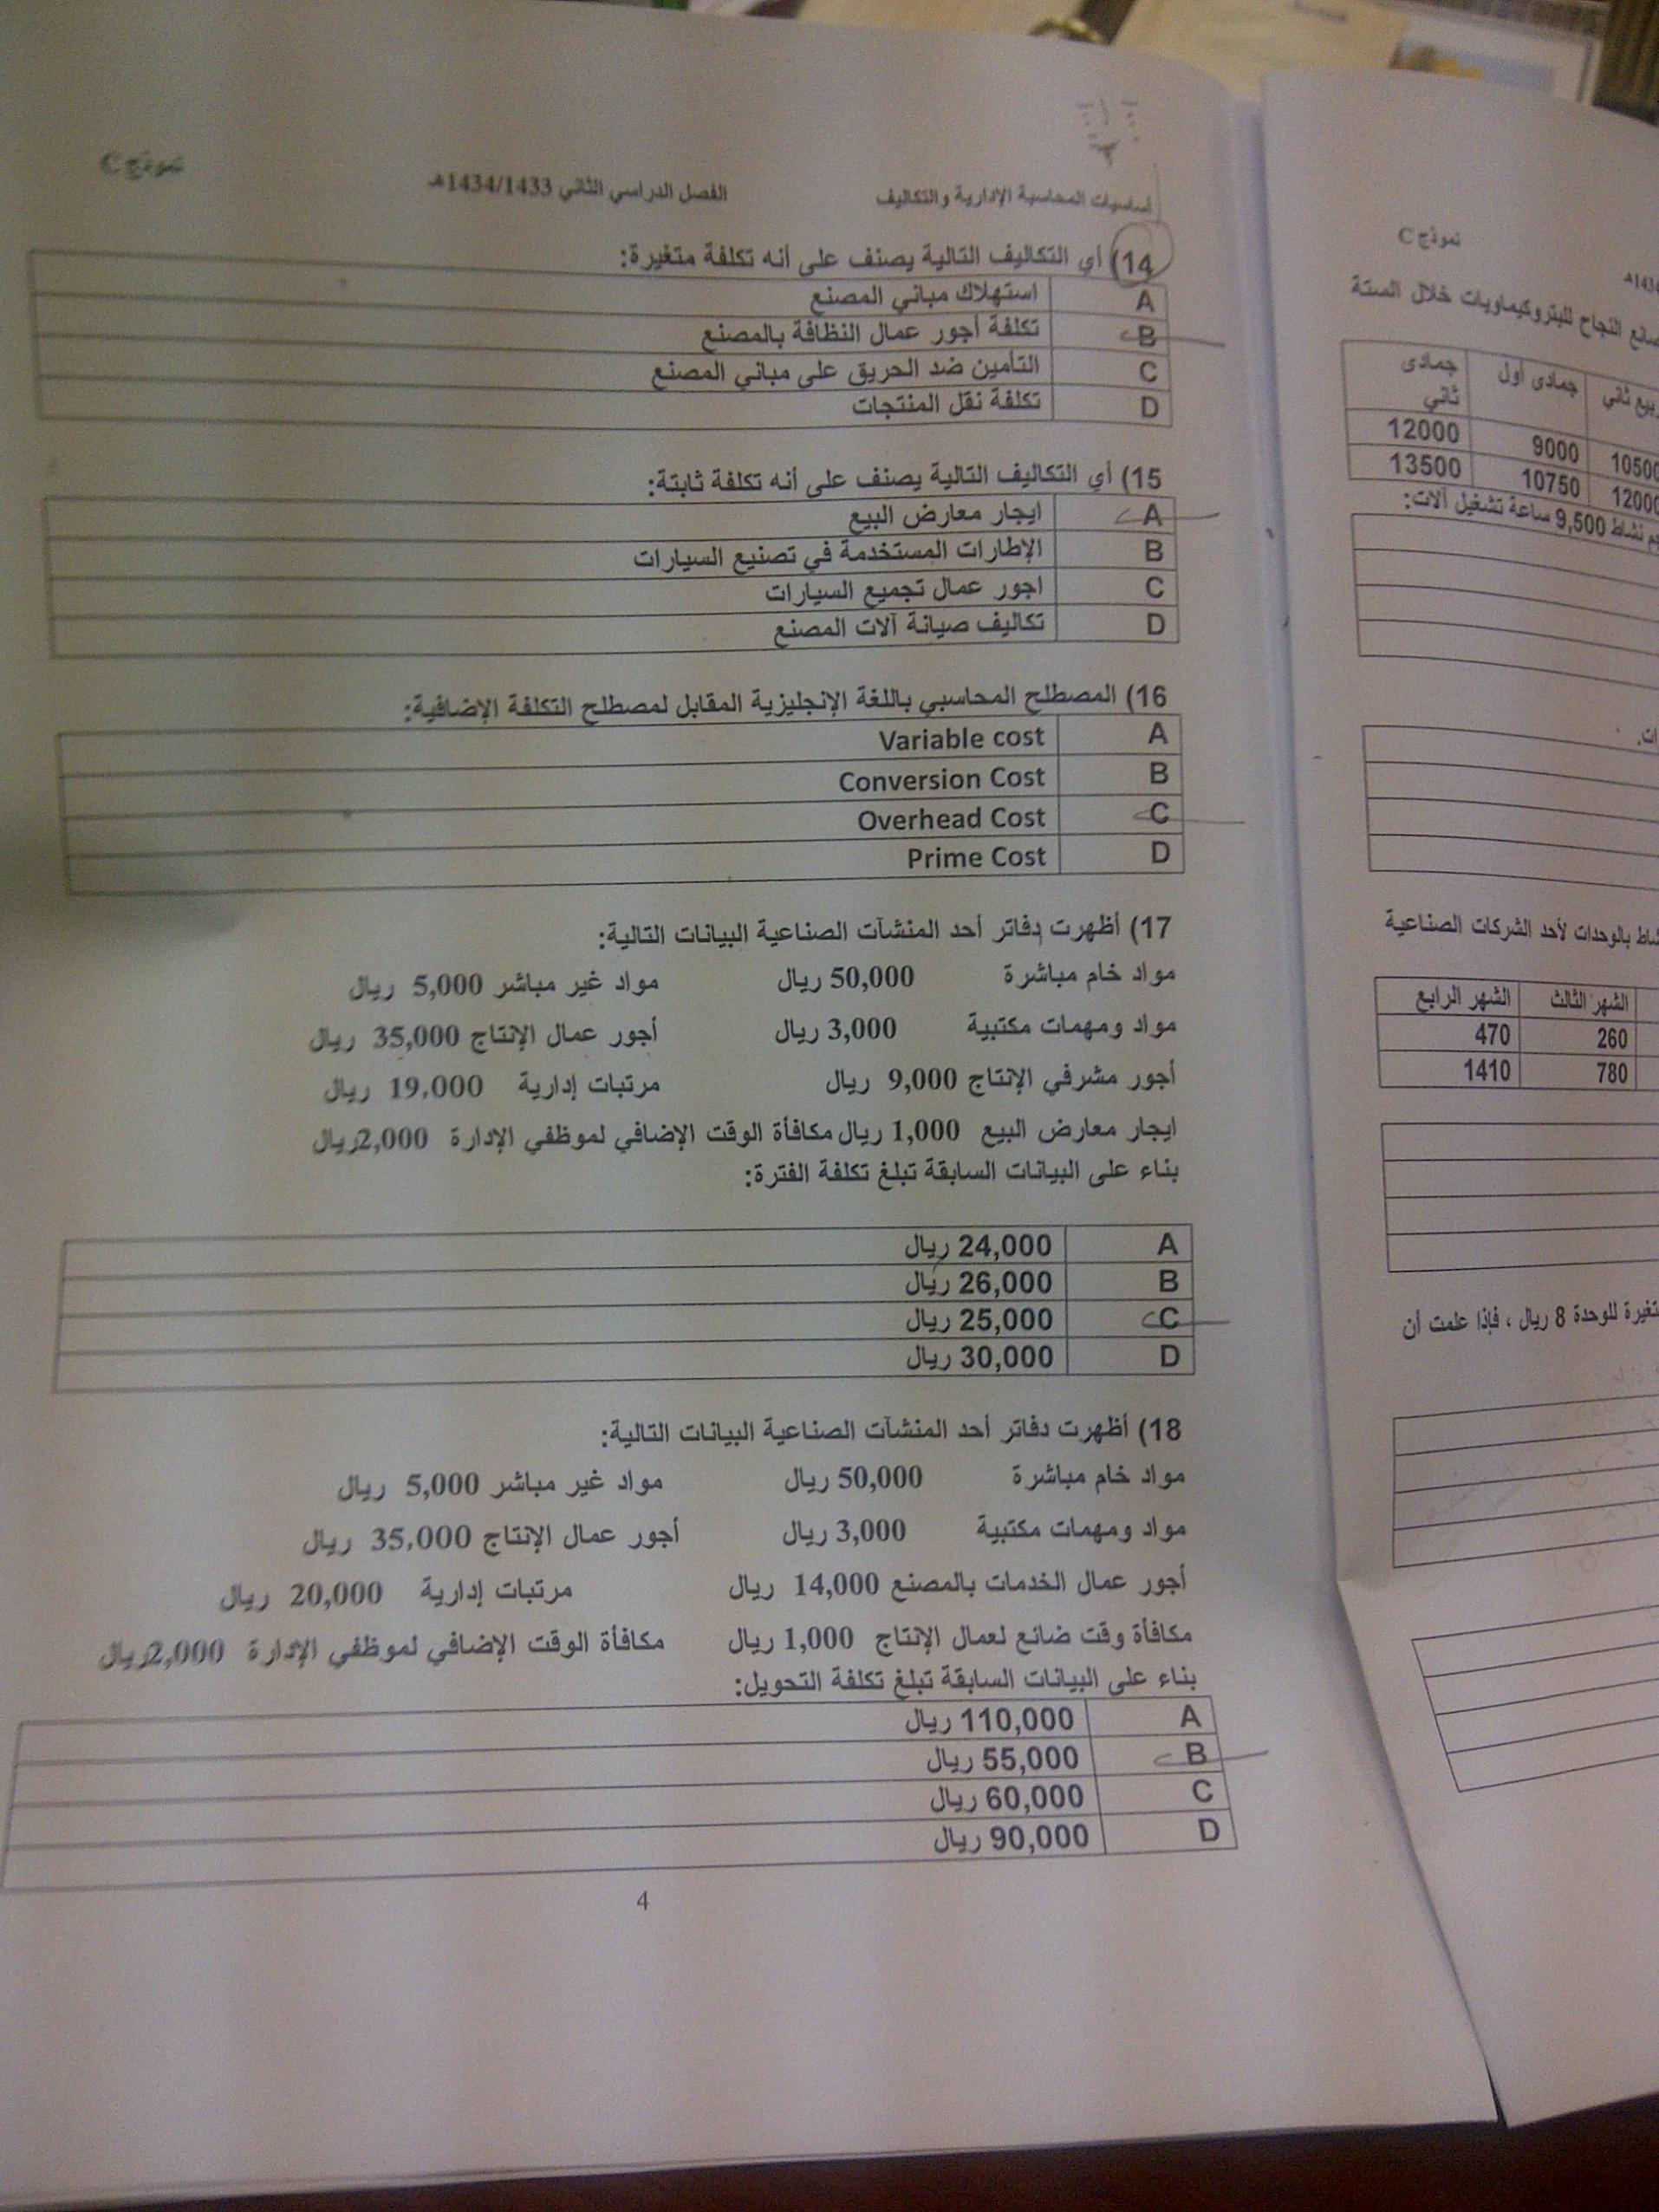 أساسيات المحاسبة الإدارية والتكاليف الفصل الدراسي الثاني 1434/1433هـ نموذج C
14) أي التكاليف التالية يصنف على أنه تكلفة متغيرة:
A استهلاك مباني المصنع
B تكلفة أجور عمال النظافة بالمصنع
C التأمين ضد الحريق على مباني المصنع
D تكلفة نقل المنتجات
15) أي التكاليف التالية يصنف على أنه تكلفة ثابتة:
A ايجار معارض البيع
B الإطارات المستخدمة في تصنيع السيارات
C اجور عمال تجميع السيارات
D تكاليف صيانة آلات المصنع
16) المصطلح المحاسبي باللغة الإنجليزية المقابل لمصطلح التكلفة الإضافية:
A Variable cost
B Conversion Cost
C Overhead Cost
D Prime Cost
17) أظهرت دفاتر أحد المنشآت الصناعية البيانات التالية:
مواد خام مباشرة 50,000 ريال مواد غير مباشر 5,000 ريال
مواد ومهمات مكتبية 3,000 ريال أجور عمال الإنتاج 35,000 ريال
أجور مشرفي الإنتاج 9,000 ريال مرتبات إدارية 19,000 ريال
ايجار معارض البيع 1,000 ريال مكافأة الوقت الإضافي لموظفي الإدارة 2,000ريال
بناء على البيانات السابقة تبلغ تكلفة الفترة:
A 24,000 ريال
B 26,000 ريال
C 25,000 ريال
D 30,000 ريال
18) أظهرت دفاتر أحد المنشآت الصناعية البيانات التالية:
مواد خام مباشرة 50,000 ريال مواد غير مباشر 5,000 ريال
مواد ومهمات مكتبية 3,000 ريال أجور عمال الإنتاج 35,000 ريال
أجور عمال الخدمات بالمصنع 14,000 ريال مرتبات إدارية 20,000 ريال
مكافأة وقت ضائع لعمال الإنتاج 1,000 ريال مكافأة الوقت الإضافي لموظفي الإدارة 2,000ريال
بناء على البيانات السابقة تبلغ تكلفة التحويل:
A 110,000 ريال
B 55,000 ريال
C 60,000 ريال
D 90,000 ريال
4
نموذج C
النجاح للبتروكيماويات خلال الستة
ثاني جمادى أول جمادى ثاني
9000 12000
12000 10750 13500
نشاط 9,500 ساعة تشغيل آلات:
بالوحدات لأحد الشركات الصناعية
الشهر الثالث الشهر الرابع
260 470
780 1410
للوحدة 8 ريال ، فإذا علمت أن